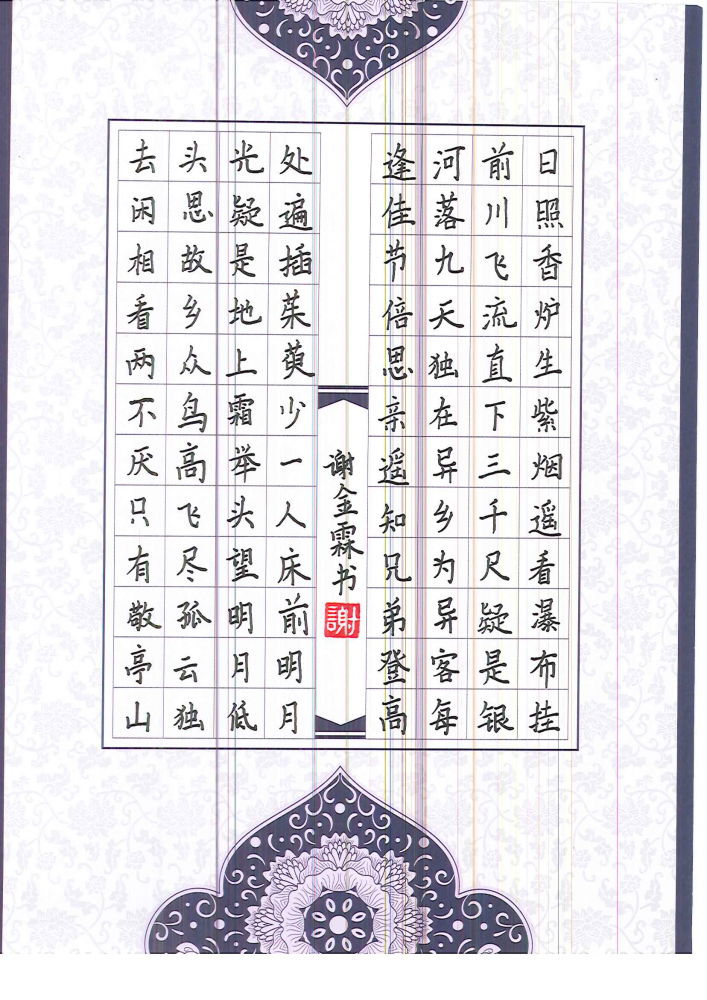 日照香炉生紫烟遥看瀑布挂
前川飞流直下三千尺疑是银
河落九天独在异乡为异客每
逢佳节倍思亲遥知兄弟登高
谢金霖书
謝
处遍插茱萸少一人床前明月
光疑是地上霜举头望明月低
头思故乡众鸟高飞尽孤云独
去闲相看两不厌只有敬亭山